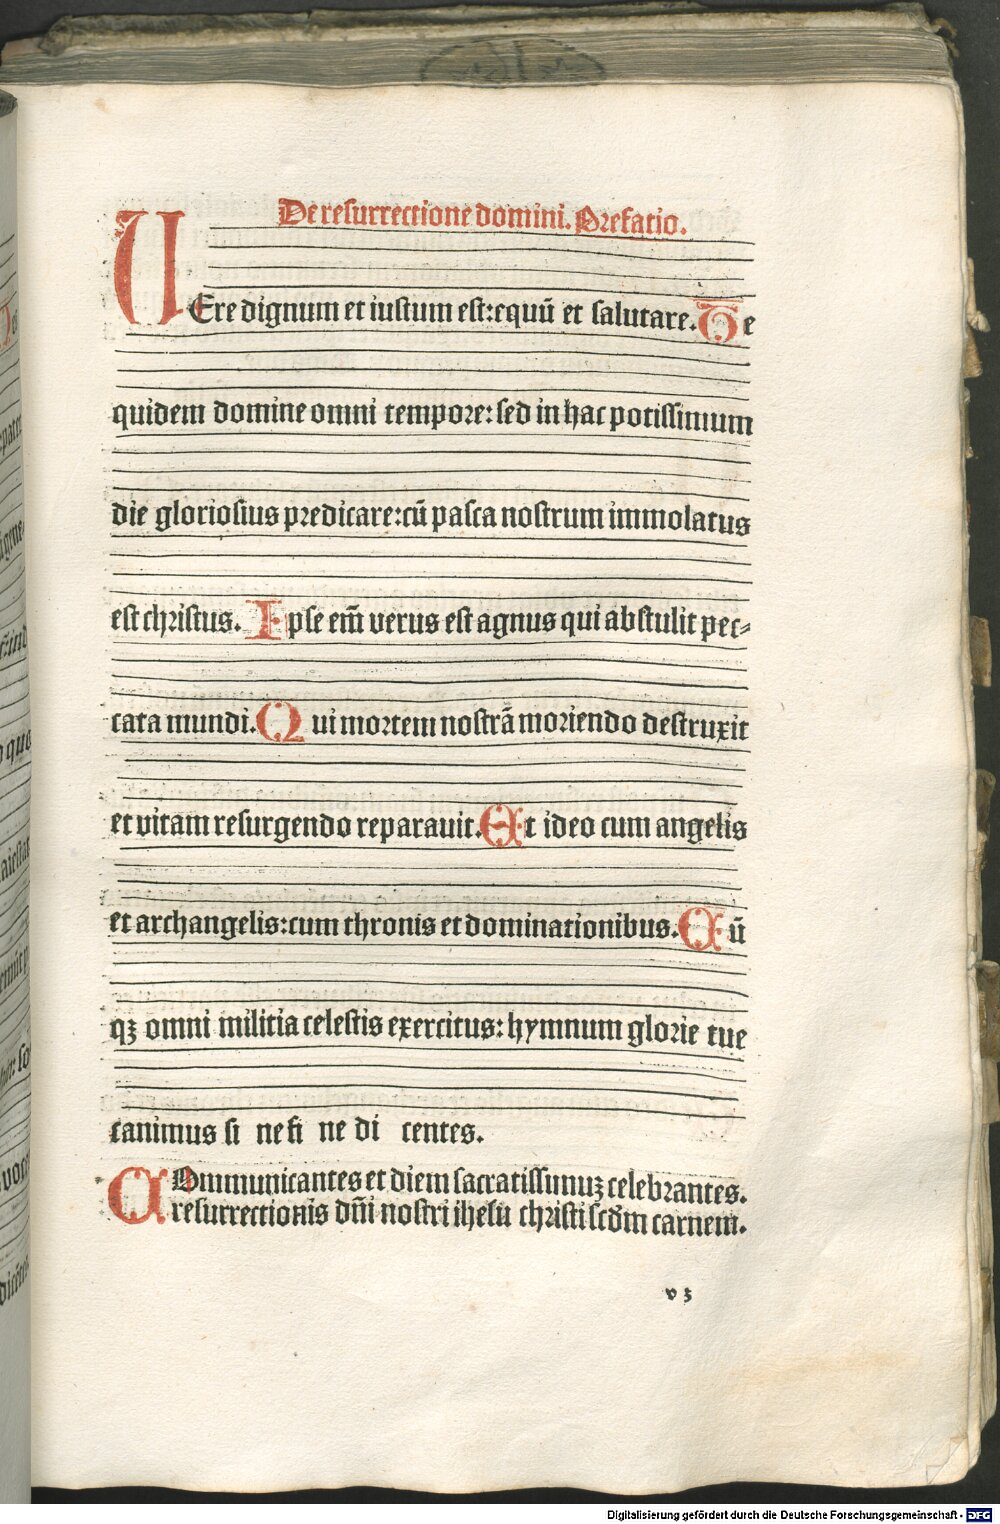 De resurrectione domini. Prefatio.
VEre dignum et iustum est:equū et salutare. Te
quidem domine omni tempore: sed in hac potissimum
die gloriosius predicare:cū pasca nostrum immolatus
est christus. Ipse em̄ verus est agnus qui abstulit pec⸗
cata mundi. Qui mortem nostrā moriendo destruxit
et vitam resurgendo reparauit. Et ideo cum angelis
et archangelis:cum thronis et dominationibus. Cū
qꝫ omni militia celestis exercitus: hymnum glorie tue
canimus si ne fi ne di centes.
COmmunicantes et diem sacratissimuꝫ celebrantes.
resurrectionis dn̄i nostri ihesu christi scdm̄ carnem.
v 3
Digitalisierung gefördert durch die Deutsche Forschungsgemeinschaft - DFG